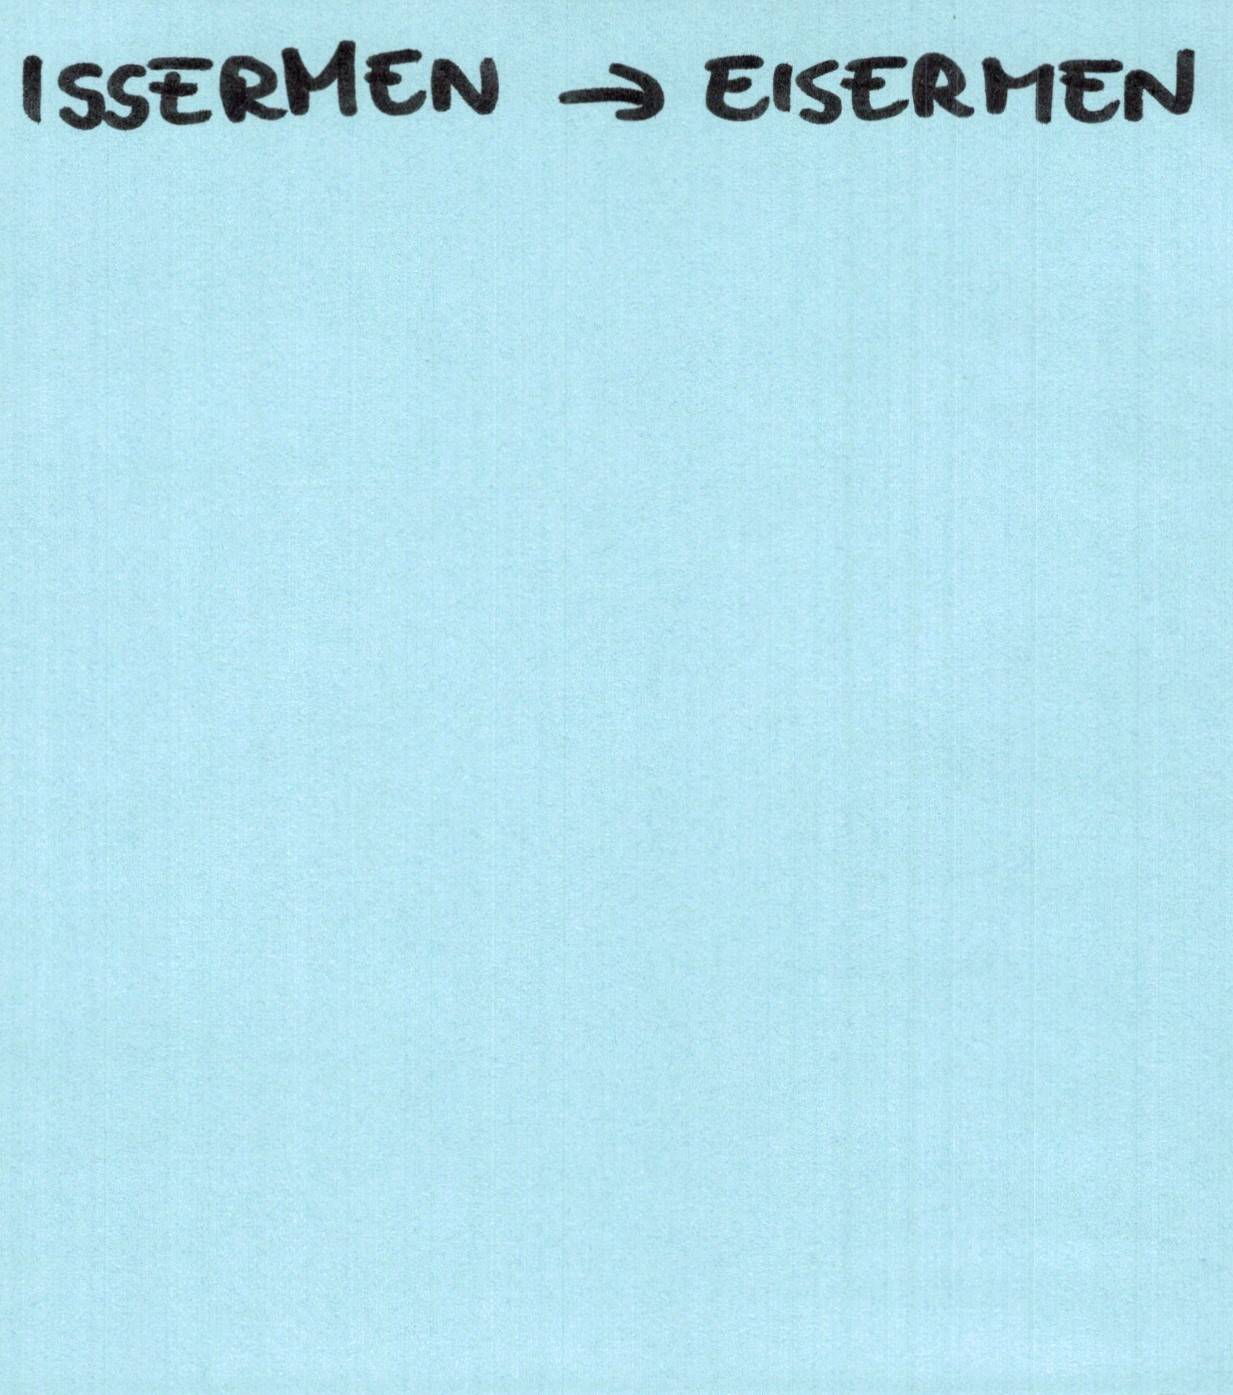 ISSERMEN → EISERMEN